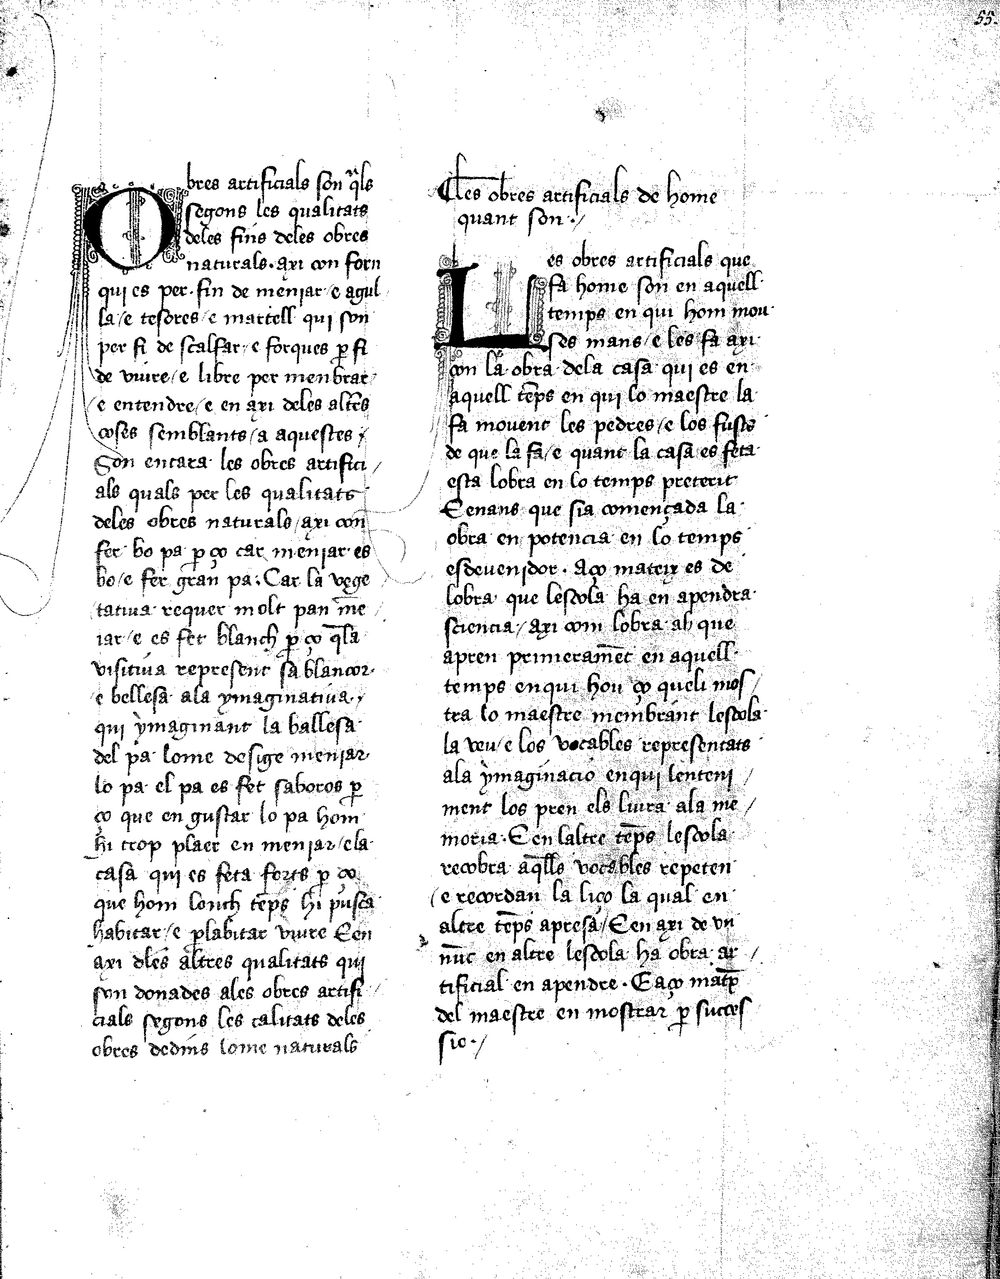 55.
Obres artificials son q̃ls
segons les qualitats
deles fins deles obres
naturals. axi con forn
qui es per fin de meniar / e agul
la / e tesores / e martell qui son
per fi de scalfar / e forques p̱ fi
de viure / e libre per menbrar
/ e entendre / e en axi deles altr̃s
coses semblants / a aquestes /
Son encara les obres artifici /
als quals per les qualitats
deles obres naturals / axi con
fer bo pa p̱ ço car meniar es
bo / e fer gran pa . Car la vege
tatiua requer molt pan me
iar / e es fet blanch p̱ ço q̃ la
visitiua represent sa blancor
e bellesa ala ymaginatiua /
qui ymaginant la ballesa
del pa lome desige meniar
lo pa el pa es fet saboros p̱
ço que en gustar lo pa hom
hi trop plaer en meniar / e la
casa qui es feta forts p̱ ço
que hom lonch tẽps hi pusca
habitar / e p̱ labitar viure E en
axi dl̃es altres qualitats qui
son donades ales obres artifi /
cials segons les calitats deles
obres dedins lome naturals
Les obres artificials de home
quant son . /
Les obres artificials que
fa home son en aquell
temps en qui hom mou
ses mans / e les fa axi
con la obra dela casa qui es en
aquell tẽps en qui lo maestre la
fa mouent les pedres / e los fusts
de que la fa / e quant la casa es feta
esta lobra en lo temps preterit
E enans que sia començada la
obra en potencia en lo temps
esdeuenidor . Aço mateix es de
lobra que lescola ha en apendra
sciencia / axi com lobra ab que
apren primeramẽt en aquell
temps en qui hou ço que li mos /
tra lo maestre membrant lescola
la veu / e los vocables representats
ala ymaginacio en qui lenteni /
ment los pren els liura ala me /
moria . E en laltre tẽps lescola
recobra aq̃lls vocables repeten
/ e recordan la liço la qual en
altre tẽps apresa / E en axi de vn
nũc en altre lescola ha obra ar /
tificial en apendre . E aço matx̃
del maestre en mostrar p̱ succes
sio . /